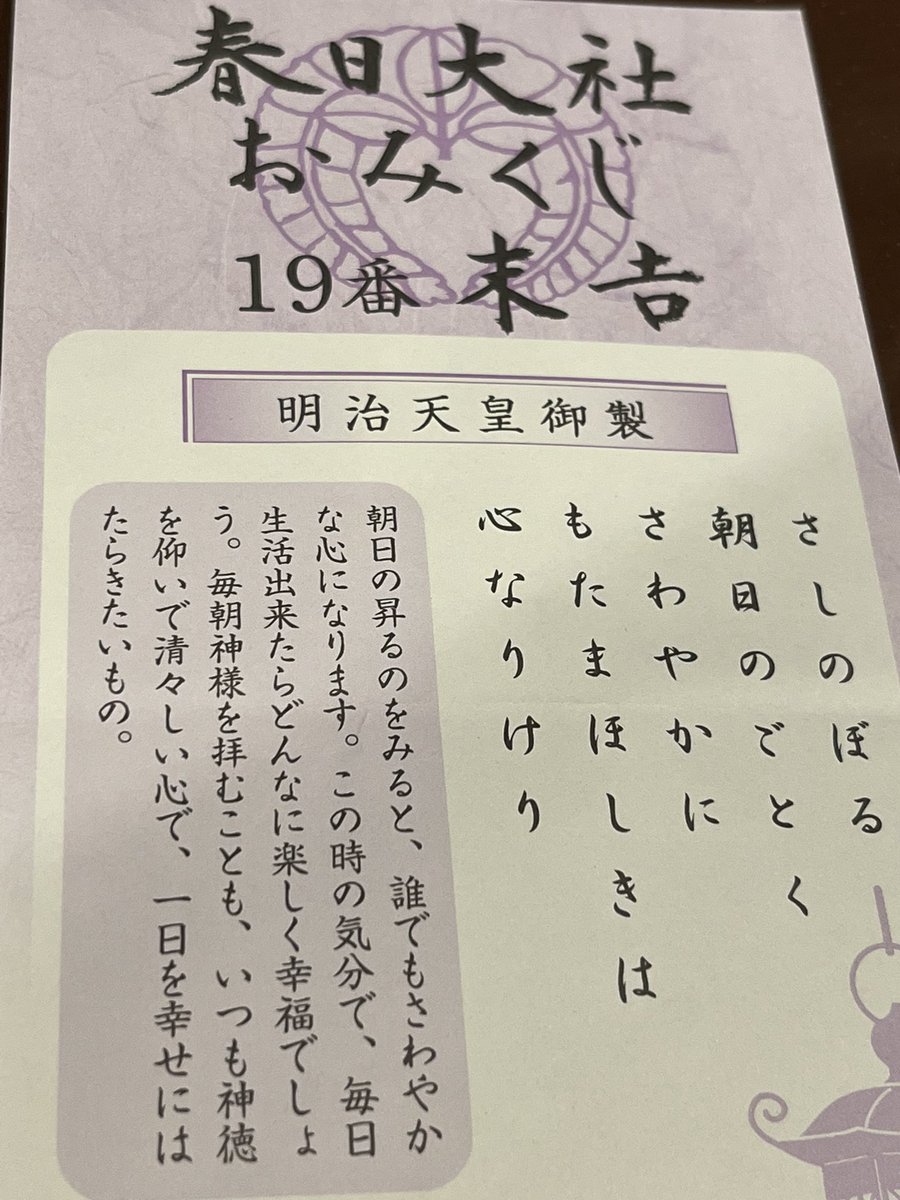 春日大社
おみくじ
19番 末吉
明治天皇御製
さしのぼる
朝日のごとく
さわやかに
もたまほしきは
心なりけり
朝日の昇るのをみると、誰でもさわやか
な心になります。この時の気分で、毎日
生活出来たらどんなに楽しく幸福でしょ
う。毎朝神様を拝むことも、いつも神徳
を仰いで清々しい心で、一日を幸せには
たらきたいもの。